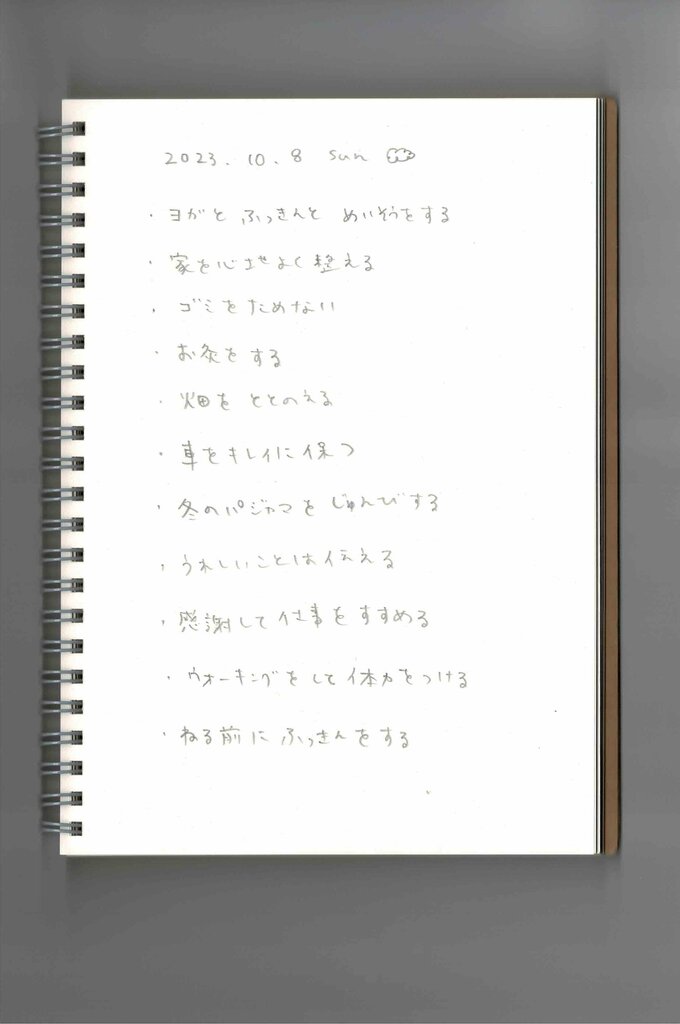 2023.10.8 sun
・ヨガと ふっきんと めいそうをする
・家を心地よく整える
・ゴミをためない
・お灸をする
・畑を ととのえる
・車をキレイに保つ
・冬のパジャマを じゅんびする
・うれしいことは伝える
・感謝して仕事をすすめる
・ウォーキングをして体力をつける
・ねる前に ふっきんをする